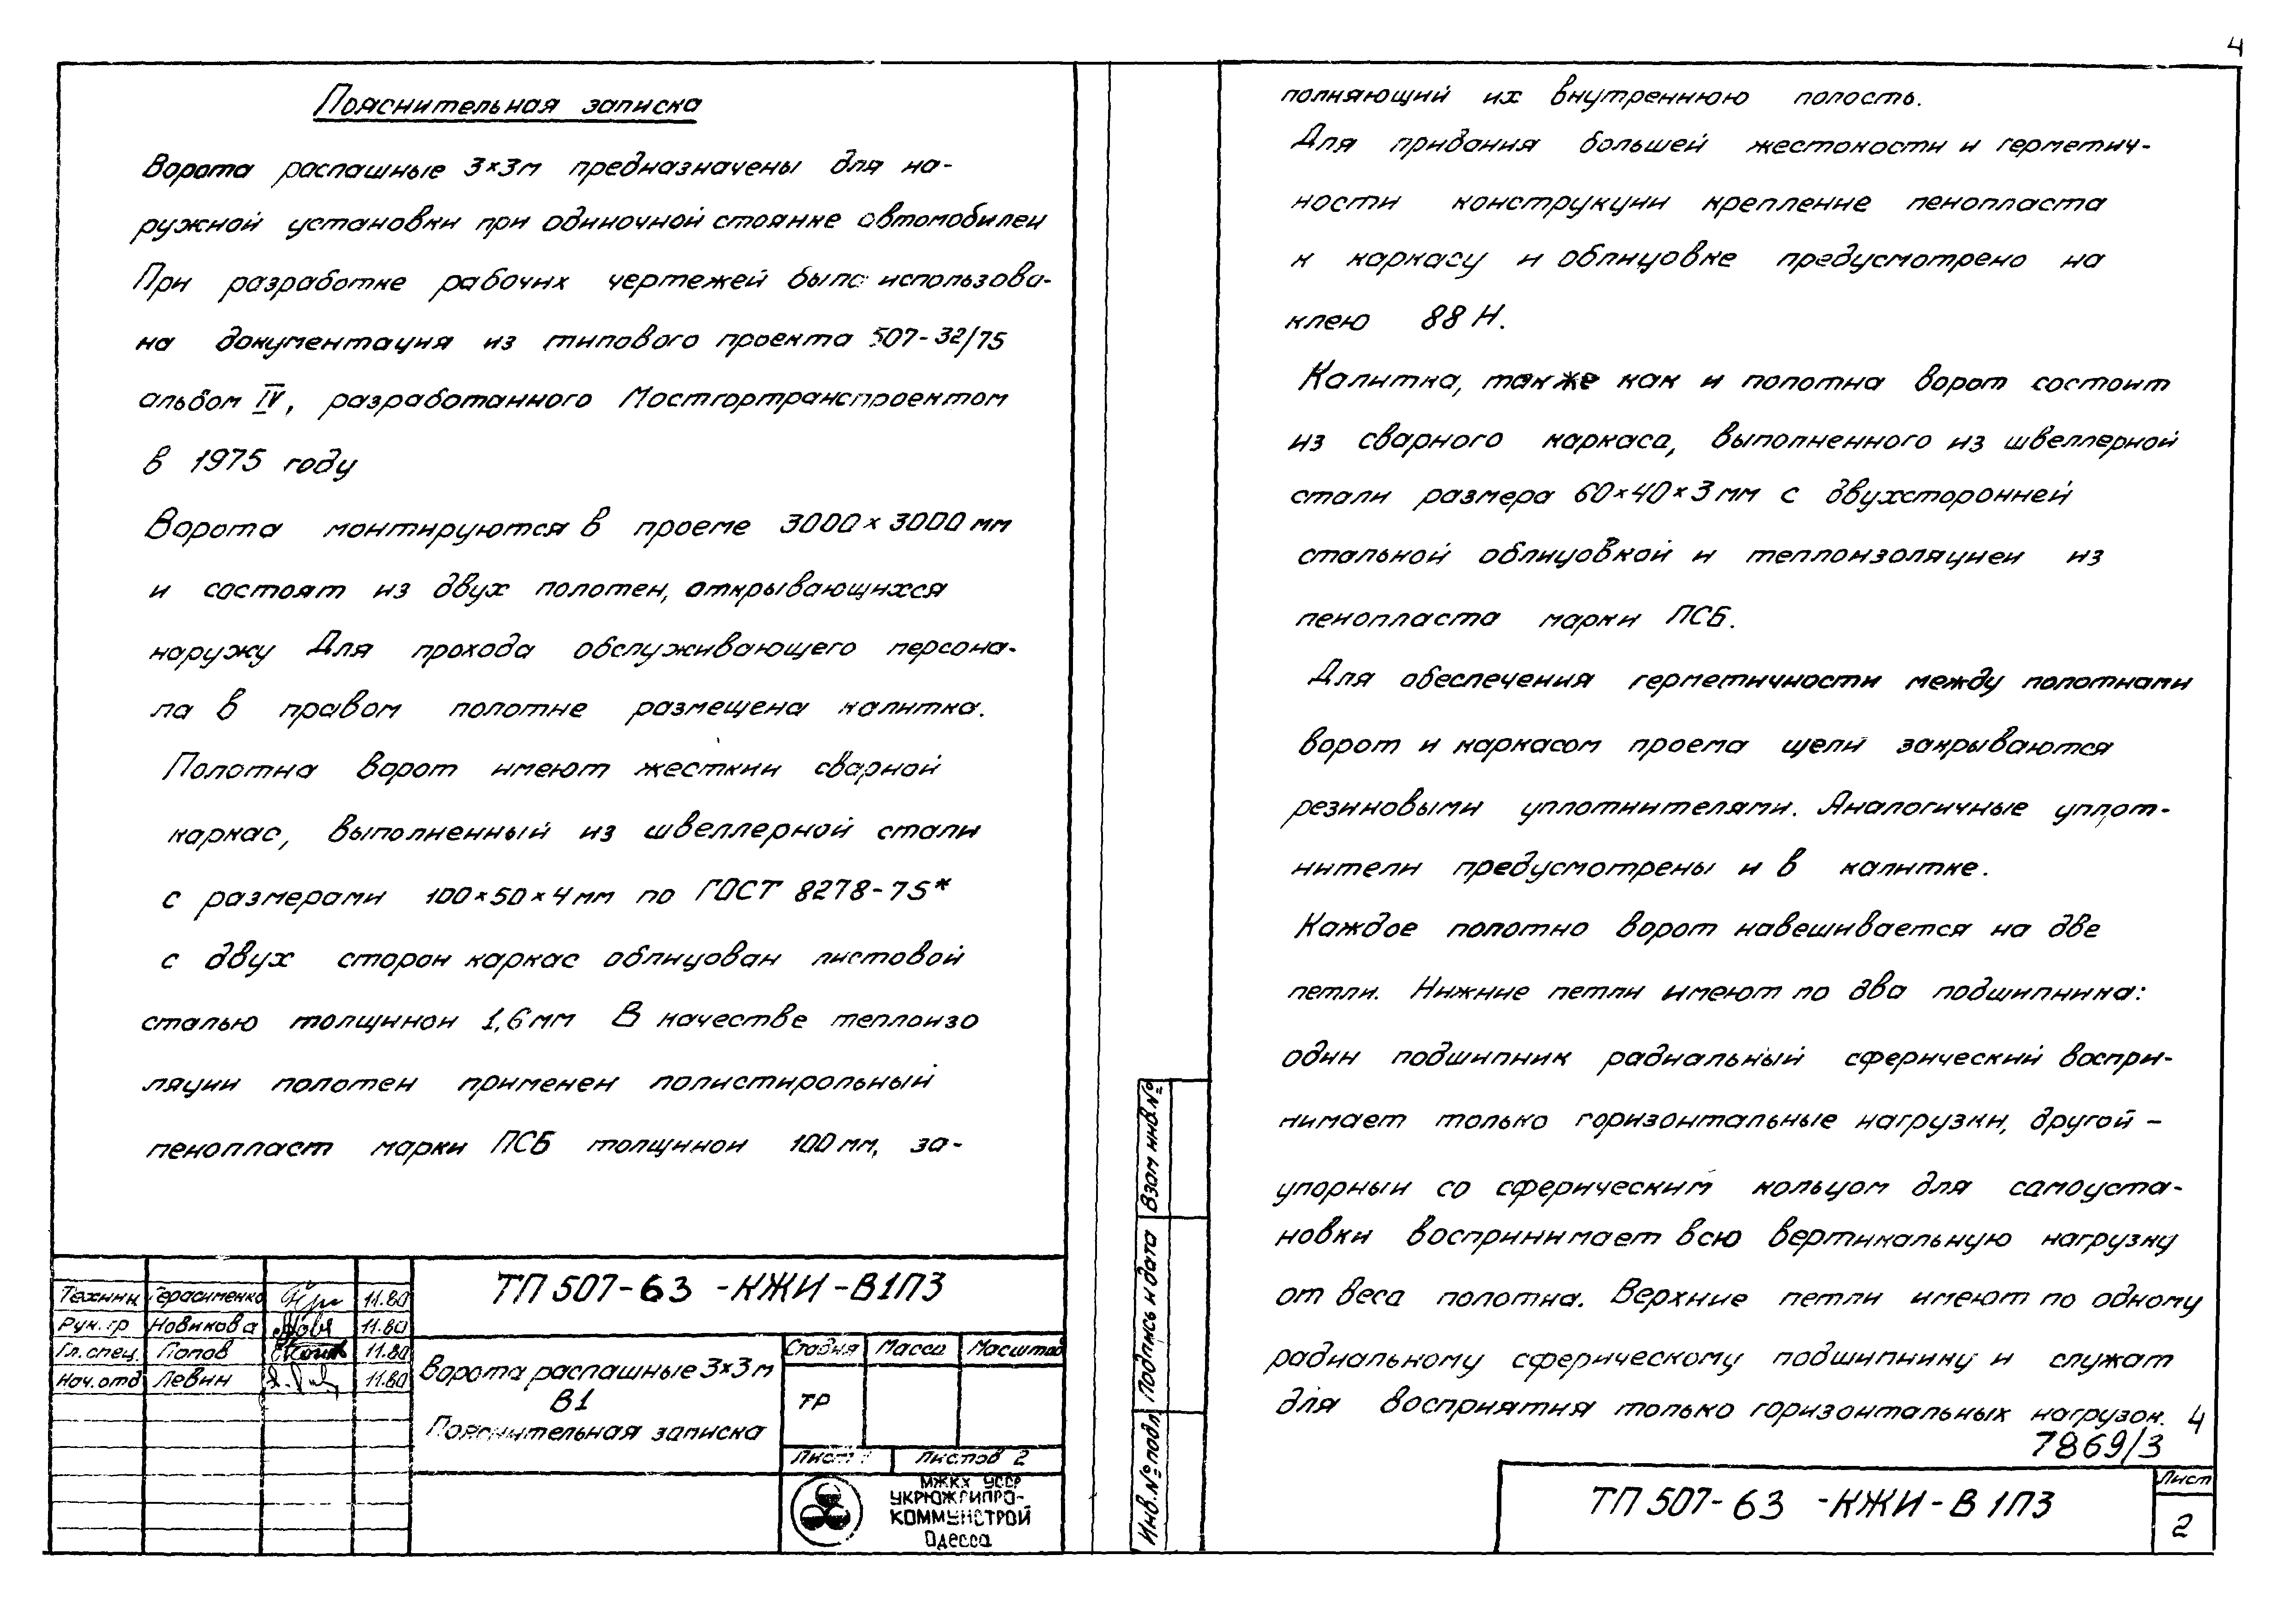 4
Пояснительная записка
Ворота распашные 3×3м предназначены для на-
ружной установки при одиночной стоянке автомобилей
При разработке рабочих чертежей была использова-
на документация из типового проекта 507-32/75
альбом IV, разработанного Мосгортранспроектом
в 1975 году
Ворота монтируются в проеме 3000×3000мм
и состоят из двух полотен, открывающихся
наружу Для прохода обслуживающего персона-
ла в правом полотне размещена калитка.
Полотна ворот имеют жесткий сварной
каркас, выполненный из швеллерной стали
с размерами 100×50×4мм по ГОСТ 8278-75*
с двух сторон каркас облицован листовой
сталью толщиной 1,6мм В качестве теплоизо
ляции полотен применен полистирольный
пенопласт марки ПСБ толщиной 100мм, за-
полняющий их внутреннюю полость.
Для придания большей жесткости и герметич-
ности конструкции крепление пенопласта
к каркасу и облицовке предусмотрено на
клею 88Н.
Калитка, также как и полотна ворот состоит
из сварного каркаса, выполненного из швеллерной
стали размера 60×40×3мм с двухсторонней
стальной облицовкой и теплоизоляцией из
пенопласта марки ПСБ.
Для обеспечения герметичности между полотнами
ворот и каркасом проема щели закрываются
резиновыми уплотнителями. Аналогичные уплот-
нители предусмотрены и в калитке.
Каждое полотно ворот навешивается на две
петли. Нижние петли имеют по два подшипника:
один подшипник радиальный сферический воспри-
нимает только горизонтальные нагрузки, другой –
упорный со сферическим кольцом для самоуста-
новки воспринимает всю вертикальную нагрузку
от веса полотна. Верхние петли имеют по одному
радиальному сферическому подшипнику и служат
для восприятия только горизонтальных нагрузок.
4
7869/3
Взам инв.№
Подпись и дата
Инв.№подл
ТП 507-63 -КЖИ-В1ПЗ
Техник Герасименко 11.80
Рук.гр Новикова 11.80
Гл.спец. Попов 11.80
Нач.отд Левин 11.80
Ворота распашные 3×3м
В1
Пояснительная записка
Стадия Масса Масштаб
ТР
Лист 1 Листов 2
МЖКХ УССР
УКРЮЖГИПРО-
КОММУНСТРОЙ
Одесса
ТП 507-63 -КЖИ-В1ПЗ
Лист
2